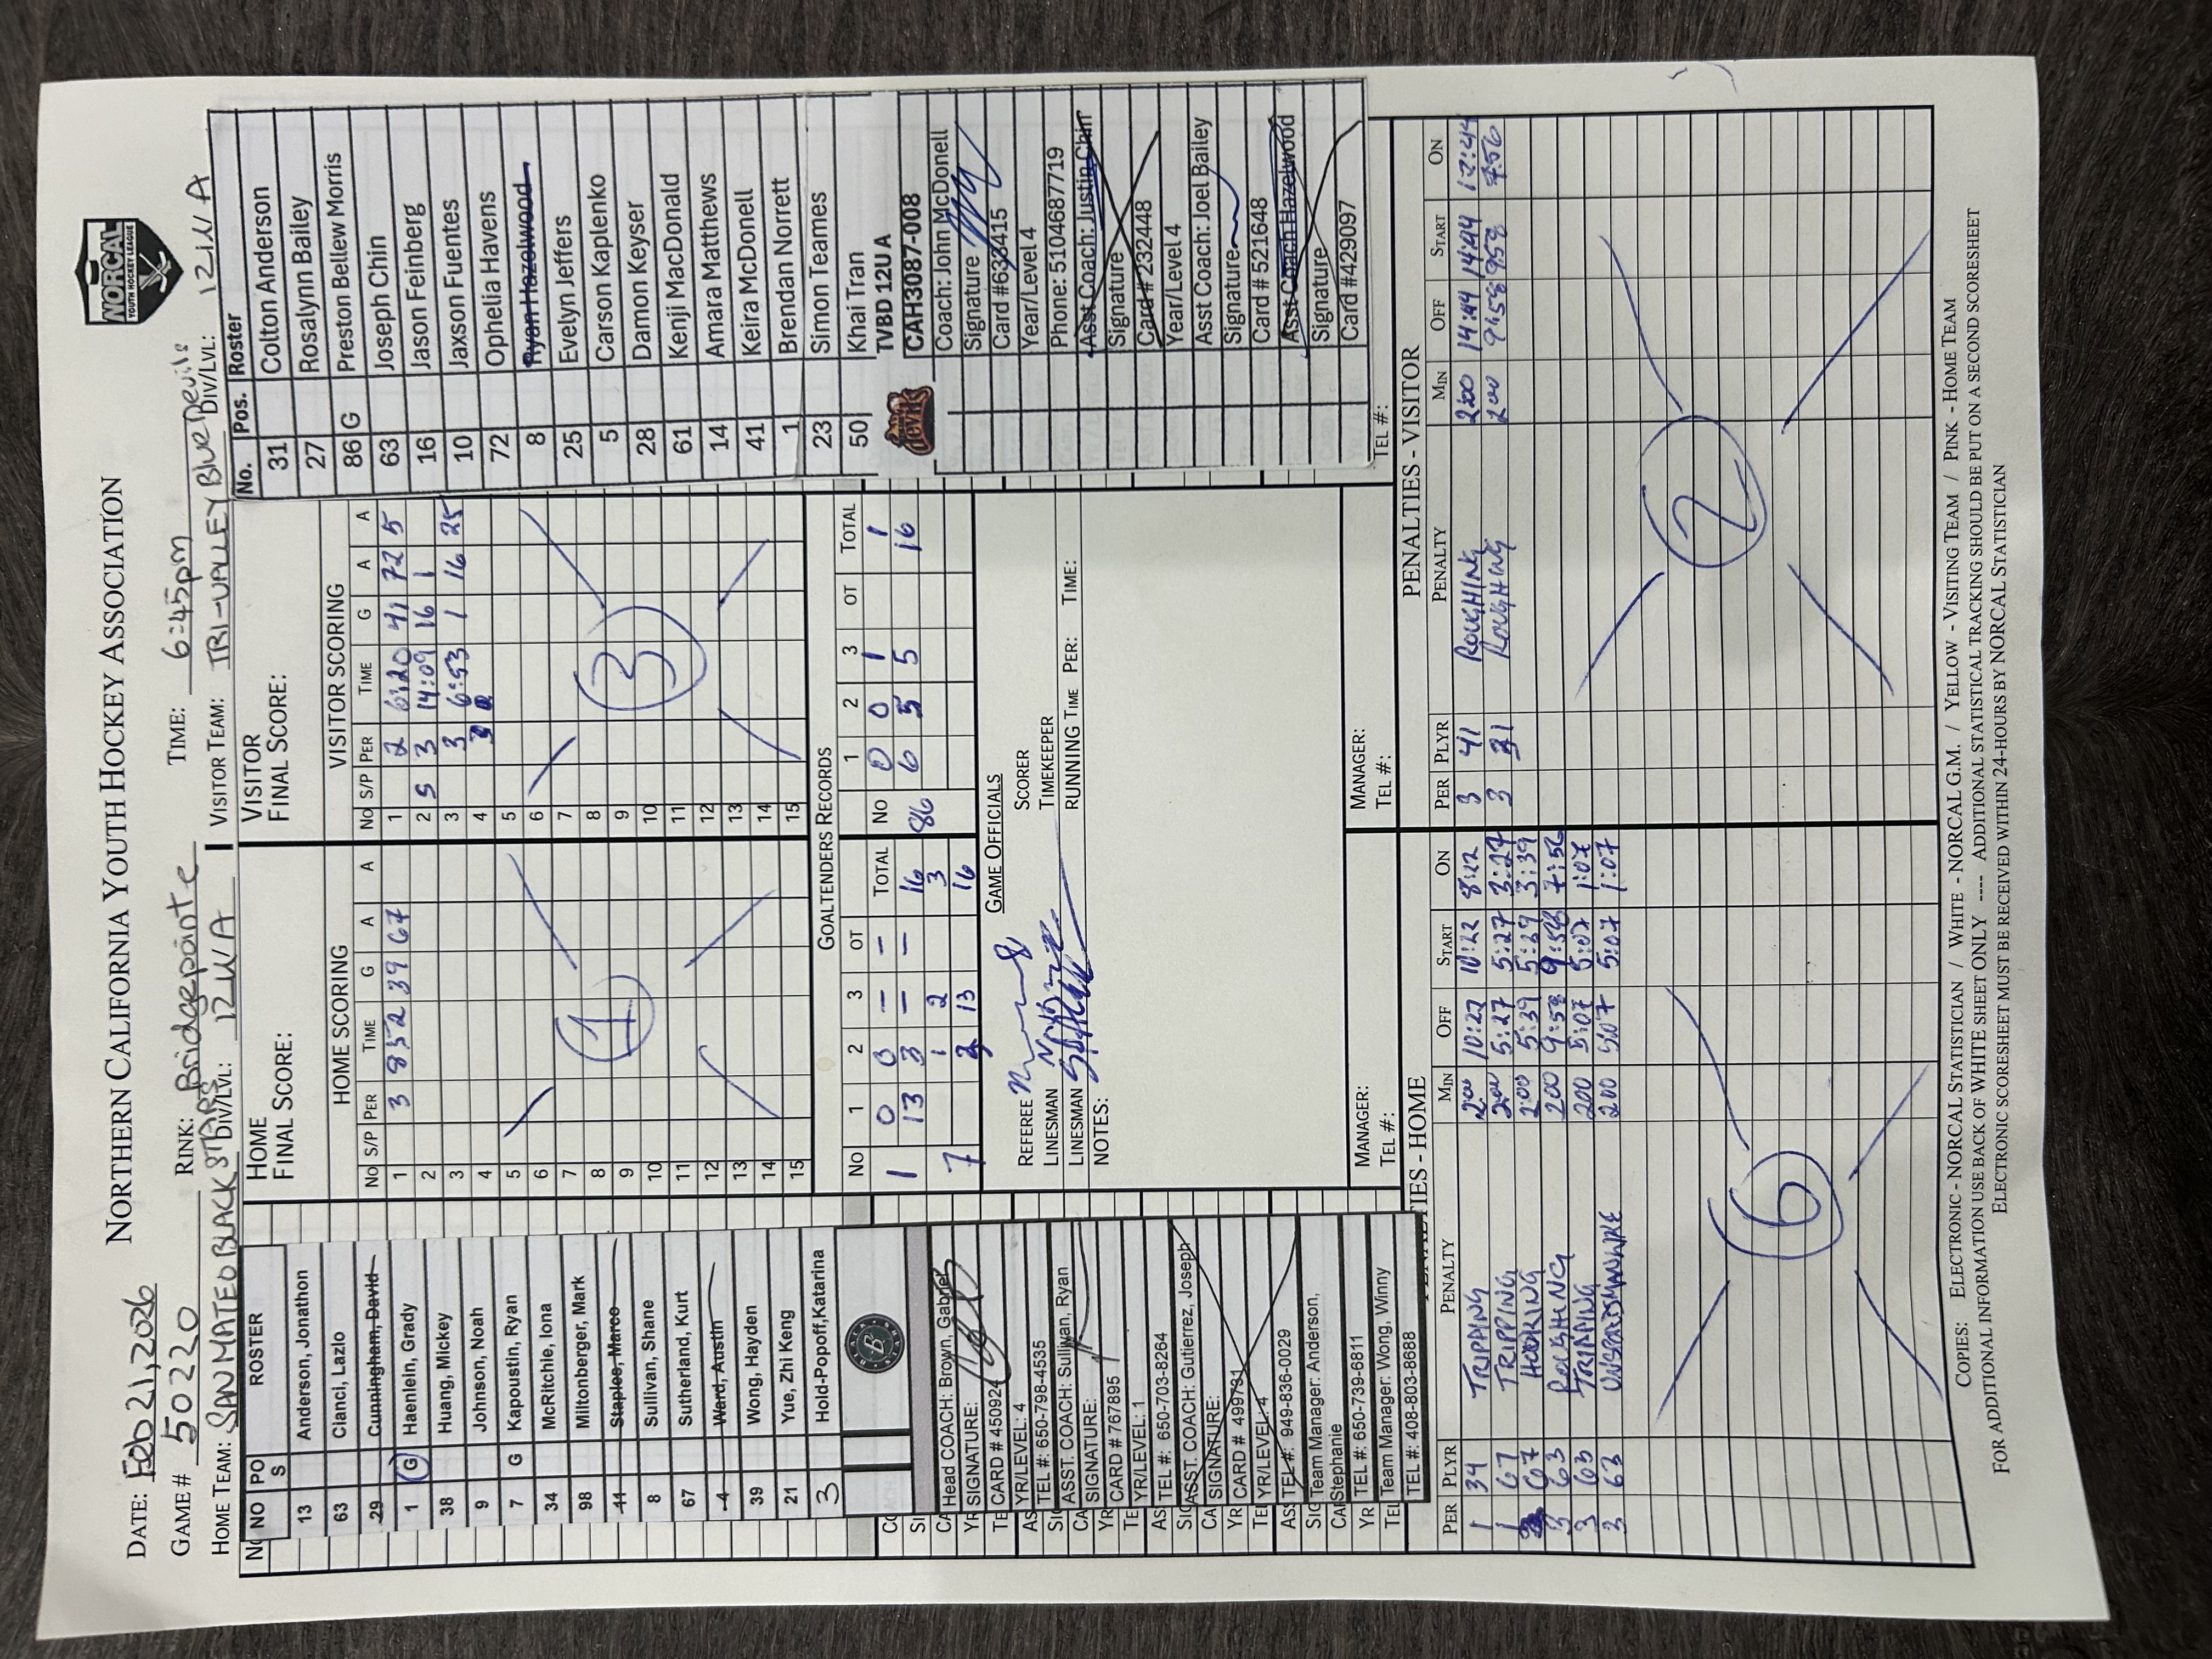 NORTHERN CALIFORNIA YOUTH HOCKEY ASSOCIATION
NORCAL
YOUTH HOCKEY LEAGUE
DATE: Feb 21, 2026
RINK: Bridgepointe
TIME: 6:45pm
GAME # 50220
HOME TEAM: SAN MATEO BLACK STARS
DIV/LVL: 12U A
VISITOR TEAM: TRI-VALLEY BLUE Devils
DIV/LVL: 12U A
NO POS ROSTER
13 Anderson, Jonathon
63 Cianci, Lazlo
29 Cunningham, David
1 G Haenlein, Grady
38 Huang, Mickey
9 Johnson, Noah
7 G Kapoustin, Ryan
34 McRitchie, Iona
98 Miltonberger, Mark
11 Staples, Marco
8 Sullivan, Shane
67 Sutherland, Kurt
4 Ward, Austin
39 Wong, Hayden
21 Yue, Zhi Keng
3 Hold-Popoff,Katarina
Head COACH: Brown, Gabriel
SIGNATURE:
CARD # 450924
YR/LEVEL: 4
TEL #: 650-798-4535
ASST. COACH: Sullivan, Ryan
SIGNATURE:
CARD # 767895
YR/LEVEL: 1
TEL #: 650-703-8264
ASST. COACH: Gutierrez, Joseph
SIGNATURE:
CARD # 499731
YR/LEVEL: 4
TEL #: 949-836-0029
Team Manager: Anderson,
Stephanie
TEL #: 650-739-6811
Team Manager: Wong, Winny
TEL #: 408-803-8688
HOME
FINAL SCORE:
HOME SCORING
No S/P PER TIME G A A
1 3 852 39 67
2
3
4
5
6
7
8
9
10
11
12
13
14
15
1
VISITOR
FINAL SCORE:
VISITOR SCORING
No S/P PER TIME G A A
1 2 6:20 41 72 5
2 S 3 14:09 16 1
3 3 6:53 1 16 25
4
5
6
7
8
9
10
11
12
13
14
15
3
GOALTENDERS RECORDS
No 1 2 3 OT TOTAL
1 0 0 — —
13 3 — — 16
7 1 2 3
3 13 16
No 1 2 3 OT TOTAL
86 0 0 1 1
6 5 5 16
GAME OFFICIALS
REFEREE
SCORER
LINESMAN
TIMEKEEPER
LINESMAN
RUNNING TIME PER: TIME:
NOTES:
MANAGER:
TEL #:
MANAGER:
TEL #:
No. Pos. Roster
31 Colton Anderson
27 Rosalynn Bailey
86 G Preston Bellew Morris
63 Joseph Chin
16 Jason Feinberg
10 Jaxson Fuentes
72 Ophelia Havens
8 Ryan Hazelwood
25 Evelyn Jeffers
5 Carson Kaplenko
28 Damon Keyser
61 Kenji MacDonald
14 Amara Matthews
41 Keira McDonell
1 Brendan Norrett
23 Simon Teames
50 Khai Tran
TVBD 12U A
devils
CAH3087-008
Coach: John McDonell
Signature
Card #633415
Year/Level 4
Phone: 5104687719
Asst Coach: Justin Chin
Signature
Card # 2332448
Year/Level 4
Asst Coach: Joel Bailey
Signature
Card # 521648
Asst Coach Hazelwood
Signature
Card #429097
TEL #:
PENALTIES - HOME
PER PLYR PENALTY MIN OFF START ON
1 34 TRIPPING 200 10:22 10:22 8:22
1 67 TRIPPING 200 5:27 5:27 3:27
67 HOOKING 200 5:39 5:39 3:39
3 63 ROUGHING 200 9:58 9:58 7:56
3 63 TRIPPING 200 5:07 5:07 1:07
3 63 200 5:07 5:07 1:07
6
PENALTIES - VISITOR
PER PLYR PENALTY MIN OFF START ON
3 41 ROUGHING 200 14:44 14:44 12:44
3 31 ROUGHING 200 9:58 9:58 7:56
2
COPIES: ELECTRONIC - NORCAL STATISTICIAN / WHITE - NORCAL G.M. / YELLOW - VISITING TEAM / PINK - HOME TEAM
FOR ADDITIONAL INFORMATION USE BACK OF WHITE SHEET ONLY ---- ADDITIONAL STATISTICAL TRACKING SHOULD BE PUT ON A SECOND SCORESHEET
ELECTRONIC SCORESHEET MUST BE RECEIVED WITHIN 24-HOURS BY NORCAL STATISTICIAN